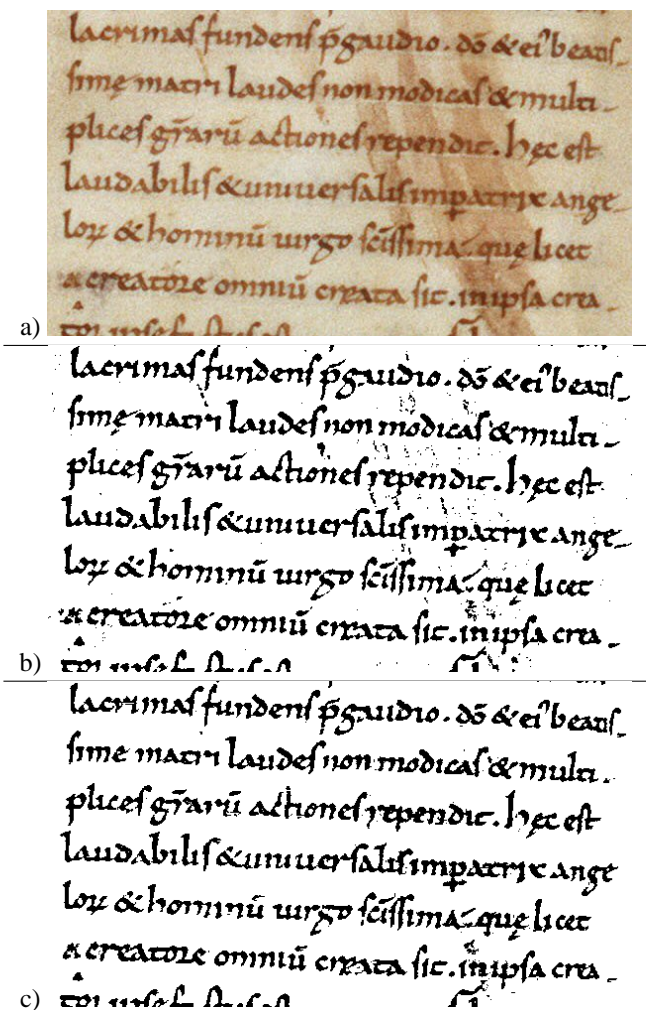 lacrimaſ fundenſ p̄ gaudio. dō & eiꝰ beatiſ-
ſimę matri laudeſ non modicaſ & multi-
pliceſ gr̄arū actioneſ rependit. hęc eſt
laudabiliſ & uniuerſaliſ imꝑatrix ange-
loꝝ & hominū uirgo ſc̄iſſima. quę licet
a creatore omniū creata ſit. in ipſa crea-
a)
lacrimaſ fundenſ p̄ gaudio. dō & eiꝰ beatiſ-
ſimę matri laudeſ non modicaſ & multi-
pliceſ gr̄arū actioneſ rependit. hęc eſt
laudabiliſ & uniuerſaliſ imꝑatrix ange-
loꝝ & hominū uirgo ſc̄iſſima. quę licet
a creatore omniū creata ſit. in ipſa crea-
b)
lacrimaſ fundenſ p̄ gaudio. dō & eiꝰ beatiſ-
ſimę matri laudeſ non modicaſ & multi-
pliceſ gr̄arū actioneſ rependit. hęc eſt
laudabiliſ & uniuerſaliſ imꝑatrix ange
loꝝ & hominū uirgo ſc̄iſſima. quę licet
a creatore omniū creata ſit. in ipſa crea-
c)